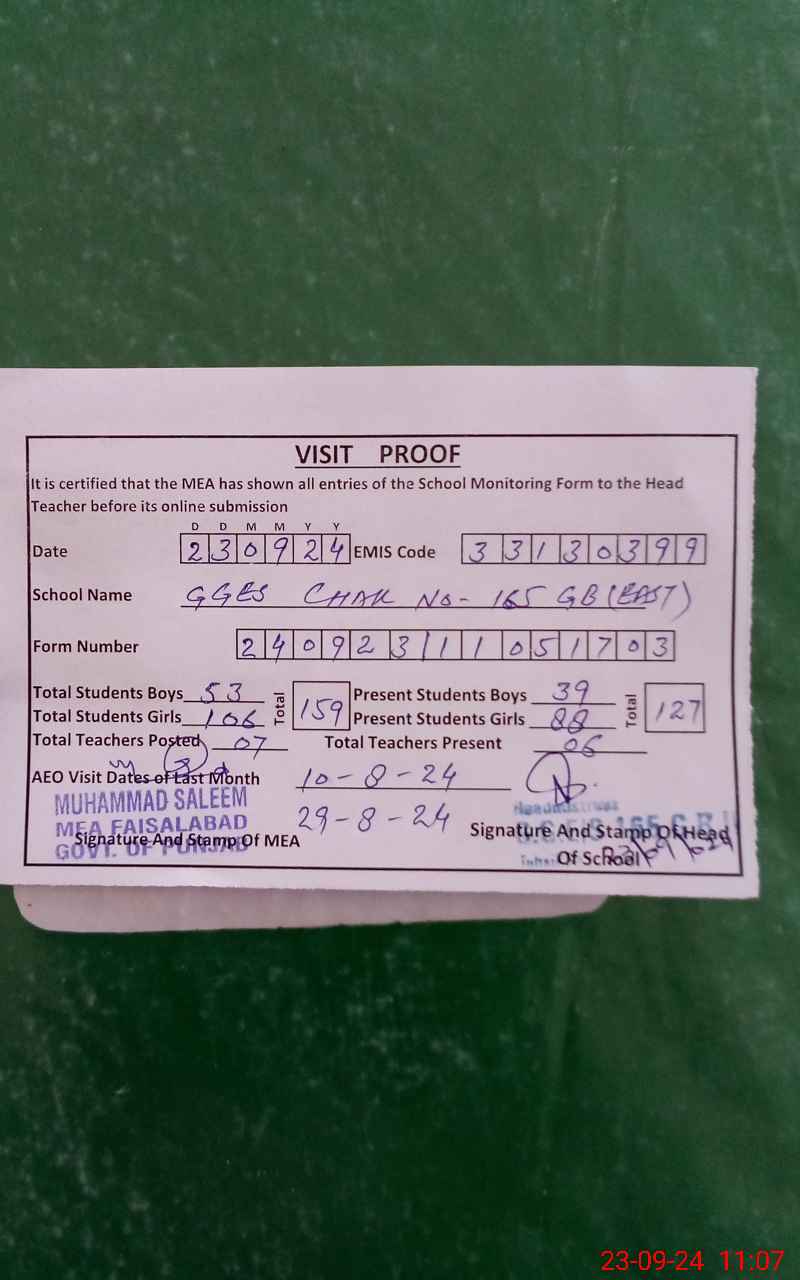 VISIT PROOF
It is certified that the MEA has shown all entries of the School Monitoring Form to the Head
Teacher before its online submission
D D M M Y Y
Date 2 3 0 9 2 4 EMIS Code 3 3 1 3 0 3 9 9
School Name GGES CHAK No- 165 GB (EAST)
Form Number 2 4 0 9 2 3 1 1 0 5 1 7 0 3
Total Students Boys 53 Total 159 Present Students Boys 39 Total 127
Total Students Girls 106 Present Students Girls 88
Total Teachers Posted 07 Total Teachers Present 06
AEO Visit Dates of Last Month 10-8-24
29-8-24
MUHAMMAD SALEEM
MEA FAISALABAD
GOVT. OF PUNJAB
Signature And Stamp Of MEA
Signature And Stamp Of Head
Of School
23-09-24 11:07